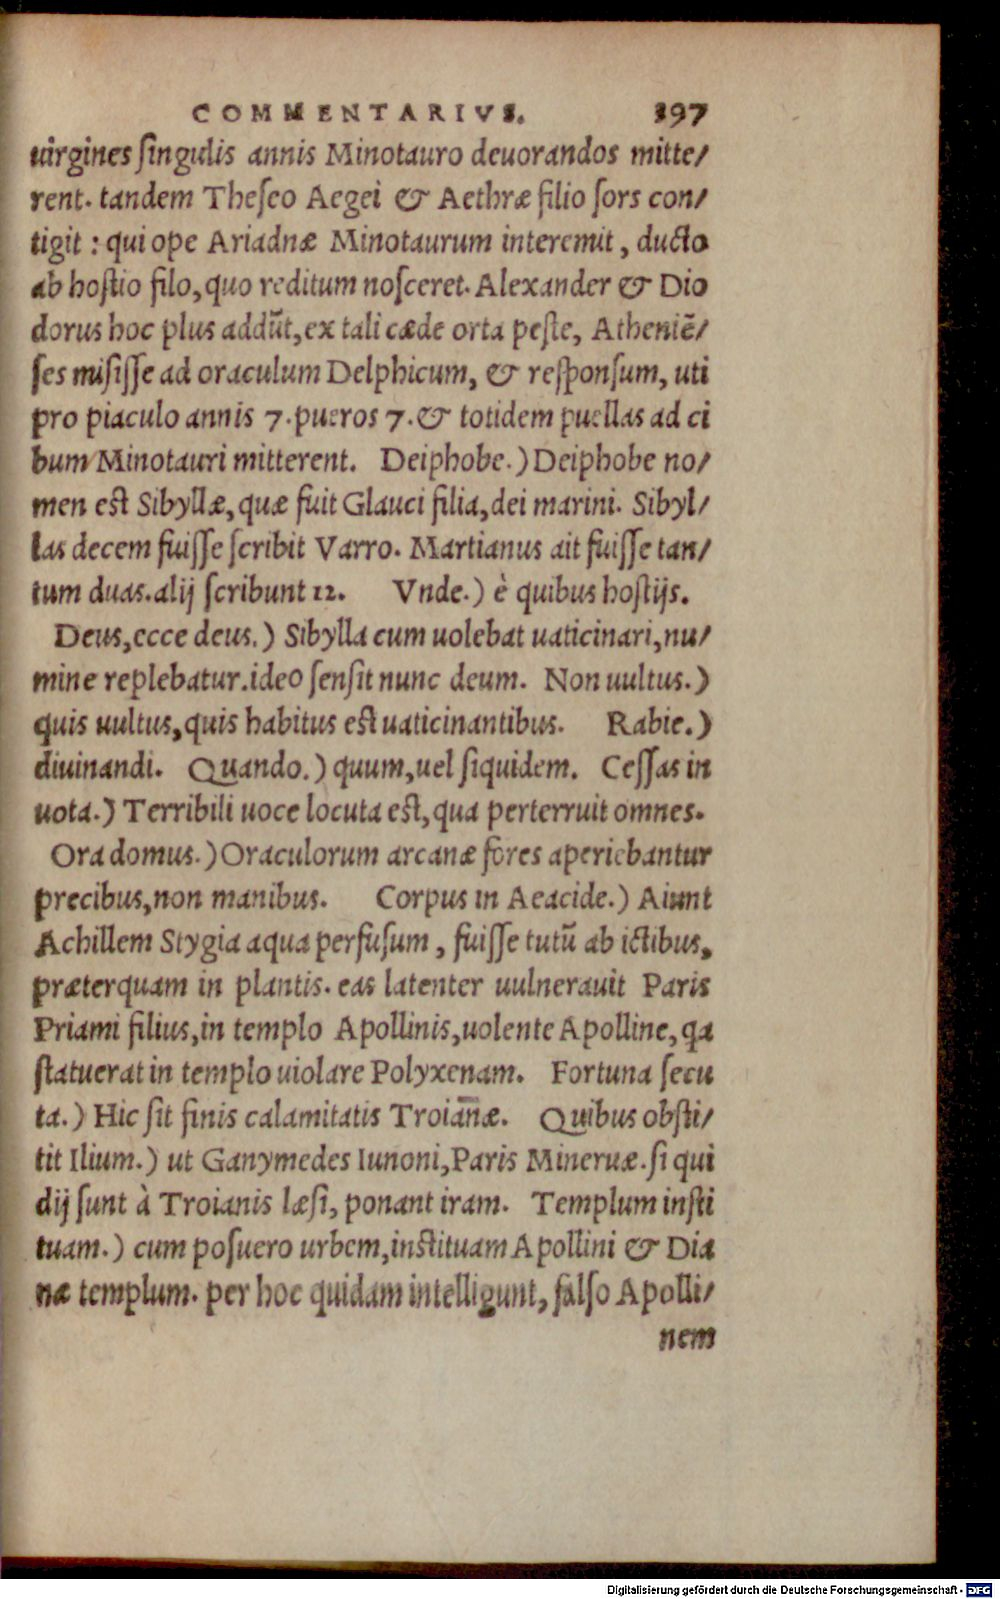 COMMENTARIVS. 197
uirgines ſingulis annis Minotauro deuorandos mitte/
rent. tandem Theſeo Aegei & Aethræ filio ſors con/
tigit : qui ope Ariadnæ Minotaurum interemit, ducto
ab hoſtio filo, quo reditum noſceret. Alexander & Dio
dorus hoc plus addũt, ex tali cæde orta peſte, Atheniẽ/
ſes miſiſſe ad oraculum Delphicum, & reſponſum, uti
pro piaculo annis 7. pueros 7. & totidem puellas ad ci
bum Minotauri mitterent. Deiphobe.) Deiphobe no/
men eſt Sibyllæ, quæ fuit Glauci filia, dei marini. Sibyl/
las decem fuiſſe ſcribit Varro. Martianus ait fuiſſe tan/
tum duas. alij ſcribunt 12. Vnde.) è quibus hoſtijs.
Deus, ecce deus.) Sibylla cum uolebat uaticinari, nu/
mine replebatur. ideo ſenſit nunc deum. Non uultus.)
quis uultus, quis habitus eſt uaticinantibus. Rabie.)
diuinandi. Quando.) quum, uel ſiquidem. Ceſſas in
uota.) Terribili uoce locuta eſt, qua perterruit omnes.
Ora domus.) Oraculorum arcanæ fores aperiebantur
precibus, non manibus. Corpus in Aeacide.) Aiunt
Achillem Stygia aqua perfuſum, fuiſſe tutũ ab ictibus,
præterquam in plantis. eas latenter uulnerauit Paris
Priami filius, in templo Apollinis, uolente Apolline, qa
ſtatuerat in templo uiolare Polyxenam. Fortuna ſecu
ta.) Hic ſit finis calamitatis Troianæ. Quibus obſti/
tit Ilium.) ut Ganymedes Iunoni, Paris Mineruæ. ſi qui
dij ſunt à Troianis læſi, ponant iram. Templum inſti
tuam.) cum poſuero urbem, inſtituam Apollini & Dia
næ templum. per hoc quidam intelligunt, falſo Apolli/
nem
Digitalisierung gefördert durch die Deutsche Forschungsgemeinschaft - DFG